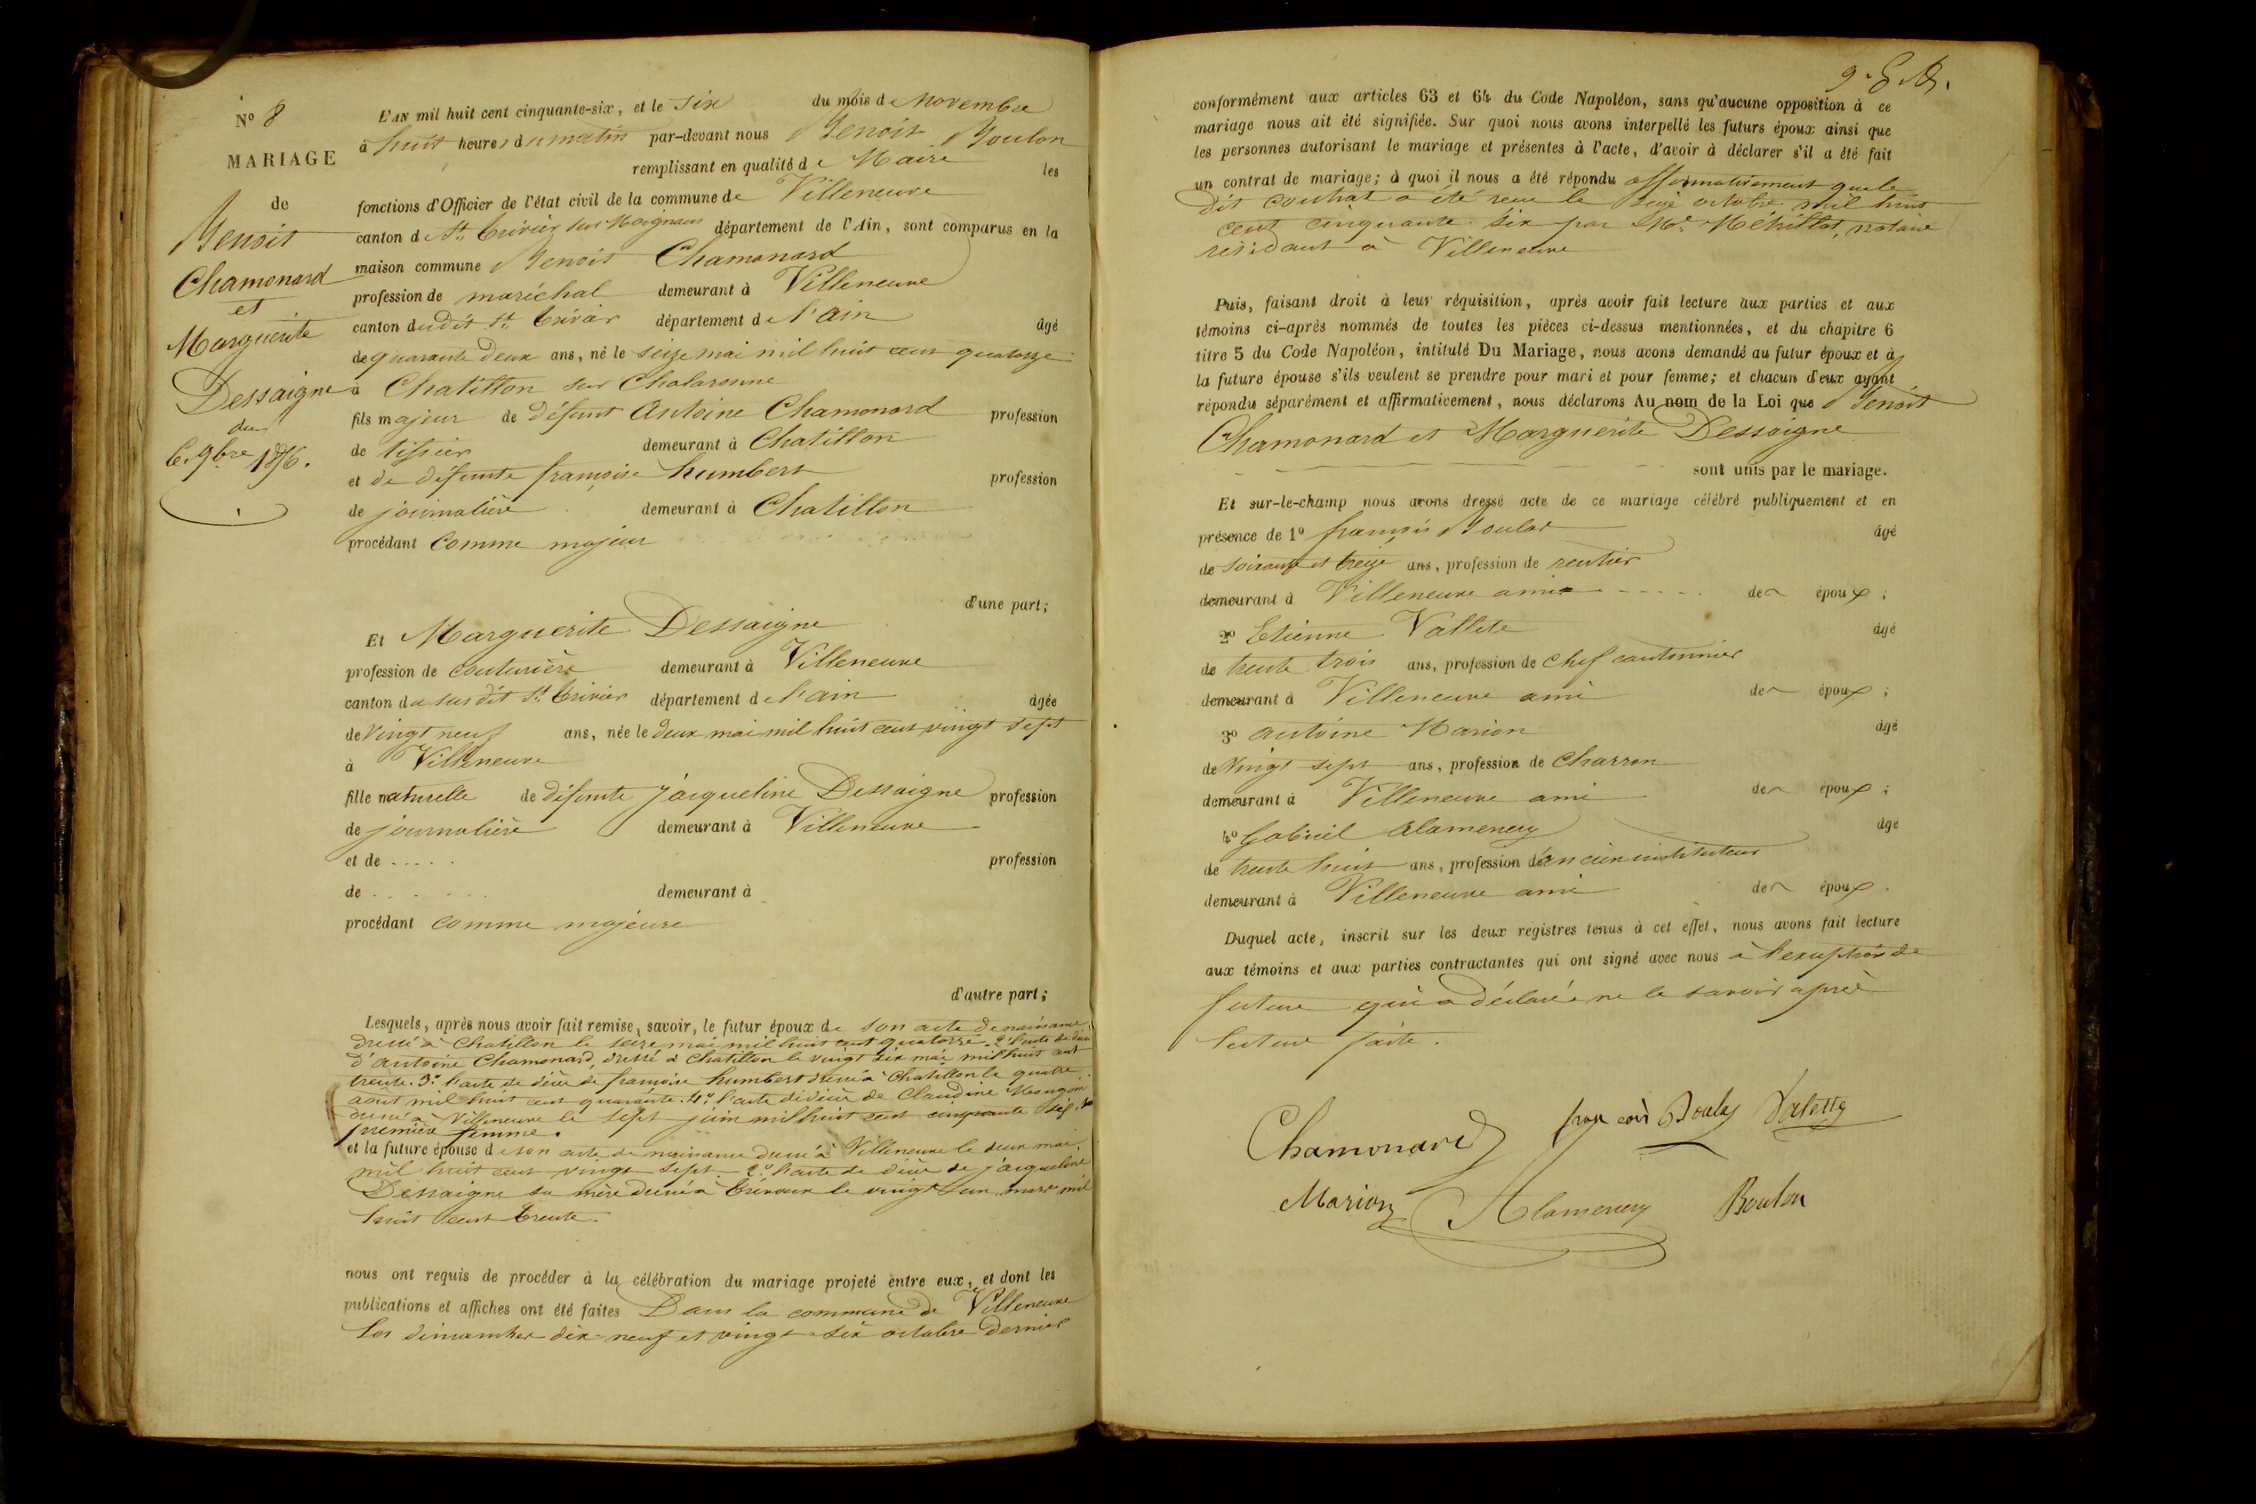 Nº 8
MARIAGE
de
Benoit
Chamonard
et
Marguerite
Dessaigne
du
6. 9bre 1856.
L'AN mil huit cent cinquante-six, et le six du mois de Novembre
à huit heures du matin par-devant nous Benoit Boulon
remplissant en qualité de Maire les
fonctions d'Officier de l'état civil de la commune de Villeneuve
canton de St. Trivier sur Moignans département de l'Ain, sont comparus en la
maison commune Benoit Chamonard
profession de maréchal demeurant à Villeneuve
canton dudit St. Trivier département de l'ain âgé
de quarante deux ans, né le seize mai mil huit cent quatorze
à Chatillon sur Chalaronne
fils majeur de défunt Antoine Chamonard profession
de tissier demeurant à Chatillon
et de défunte françoise humbert profession
de journalière demeurant à Chatillon
procédant comme majeur
d'une part;
Et Marguerite Dessaigne
profession de couturière demeurant à Villeneuve
canton du susdit St. Trivier département de l'ain âgée
de vingt neuf ans, née le deux mai mil huit cent vingt sept
à Villeneuve
fille naturelle de défunte jacqueline Dessaigne profession
de journalière demeurant à Villeneuve
et de ..... profession
de ..... demeurant à
procédant comme majeure
d'autre part;
Lesquels, après nous avoir fait remise, savoir, le futur époux de son acte de naissance
dressé à Chatillon le seize mai mil huit cent quatorze. 2º l'acte de décès
d'antoine Chamonard, dressé à Chatillon le vingt six mai mil huit cent
trente. 3º l'acte de décès de françoise humbert dressé à Chatillon le quatre
aout mil huit cent quarante. 4º l'acte de décès de Claudine
dressé à Villeneuve le sept juin mil huit cent cinquante six, sa
première femme.
et la future épouse de son acte de naissance dressé à Villeneuve le deux mai
mil huit cent vingt sept. 2º l'acte de décès de jacqueline
Dessaigne sa mère dressé à Trévoux le vingt un mars mil
huit cent trente.
nous ont requis de procéder à la célébration du mariage projeté entre eux, et dont les
publications et affiches ont été faites Dans la commune de Villeneuve
les dimanches dix-neuf et vingt-six octobre dernier
conformément aux articles 63 et 64 du Code Napoléon, sans qu'aucune opposition à ce
mariage nous ait été signifiée. Sur quoi nous avons interpellé les futurs époux ainsi que
les personnes autorisant le mariage et présentes à l'acte, d'avoir à déclarer s'il a été fait
un contrat de mariage; à quoi il nous a été répondu affirmativement que le
dit contrat a été reçu le octobre mil huit
cent cinquante six par Me. Méhillot, notaire
résidant à Villeneuve
Puis, faisant droit à leur réquisition, après avoir fait lecture aux parties et aux
témoins ci-après nommés de toutes les pièces ci-dessus mentionnées, et du chapitre 6
titre 5 du Code Napoléon, intitulé Du Mariage, nous avons demandé au futur époux et à
la future épouse s'ils veulent se prendre pour mari et pour femme; et chacun d'eux ayant
répondu séparément et affirmativement, nous déclarons Au nom de la Loi que Benoit
Chamonard et Marguerite Dessaigne
sont unis par le mariage.
Et sur-le-champ nous avons dressé acte de ce mariage célébré publiquement et en
présence de 1º françois Boulot âgé
de soixante et treize ans, profession de rentier
demeurant à Villeneuve ami des époux;
2º Etienne Vallete âgé
de trente trois ans, profession de chef cantonnier
demeurant à Villeneuve ami des époux;
3º antoine Marion âgé
de vingt sept ans, profession de charron
demeurant à Villeneuve ami des époux;
4º Gabriel Alamercery âgé
de trente huit ans, profession d'ancien instituteur
demeurant à Villeneuve ami des époux.
Duquel acte, inscrit sur les deux registres tenus à cet effet, nous avons fait lecture
aux témoins et aux parties contractantes qui ont signé avec nous à l'exception de
future qui a déclaré ne le savoir après
lecture faite.
Chamonard Valette
Marion Alamercery Boulon